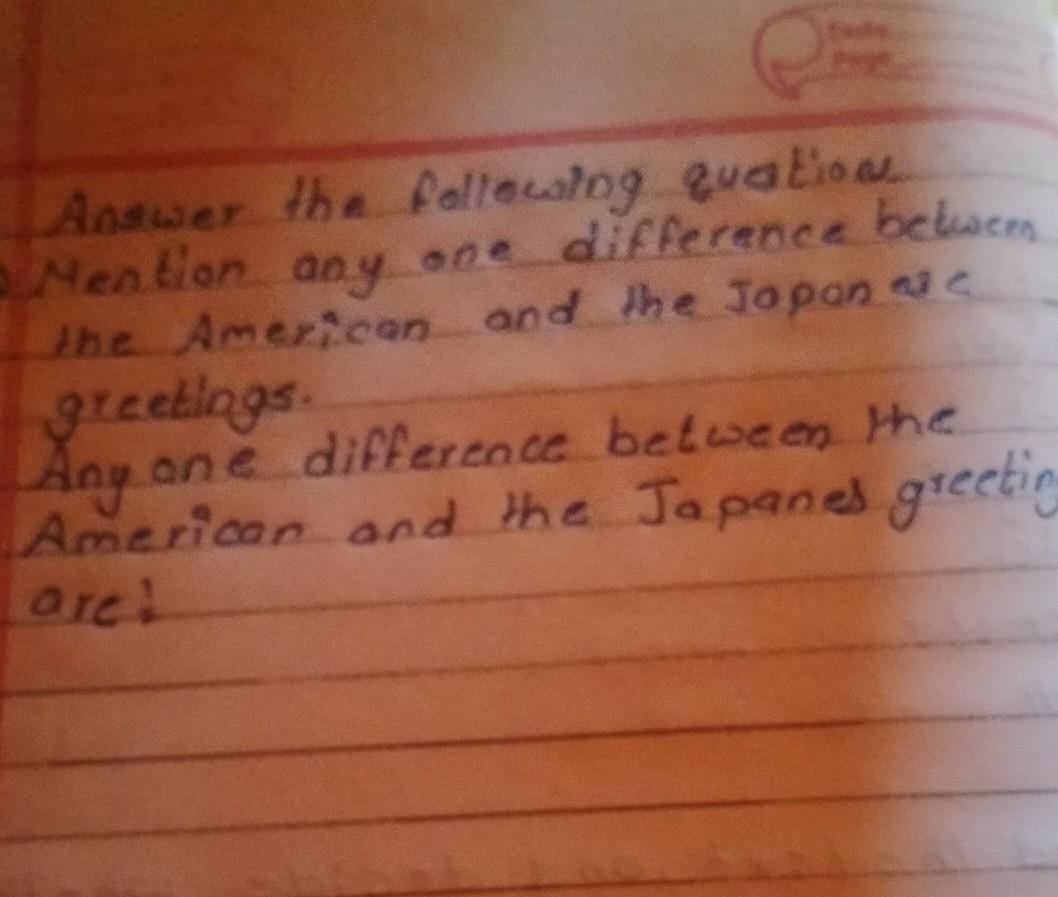 Date
Page
Answer the following quation
Mention any one difference between
the American and the Japanese
greetings.
Any one difference between the
American and the Japanes greeting
are: